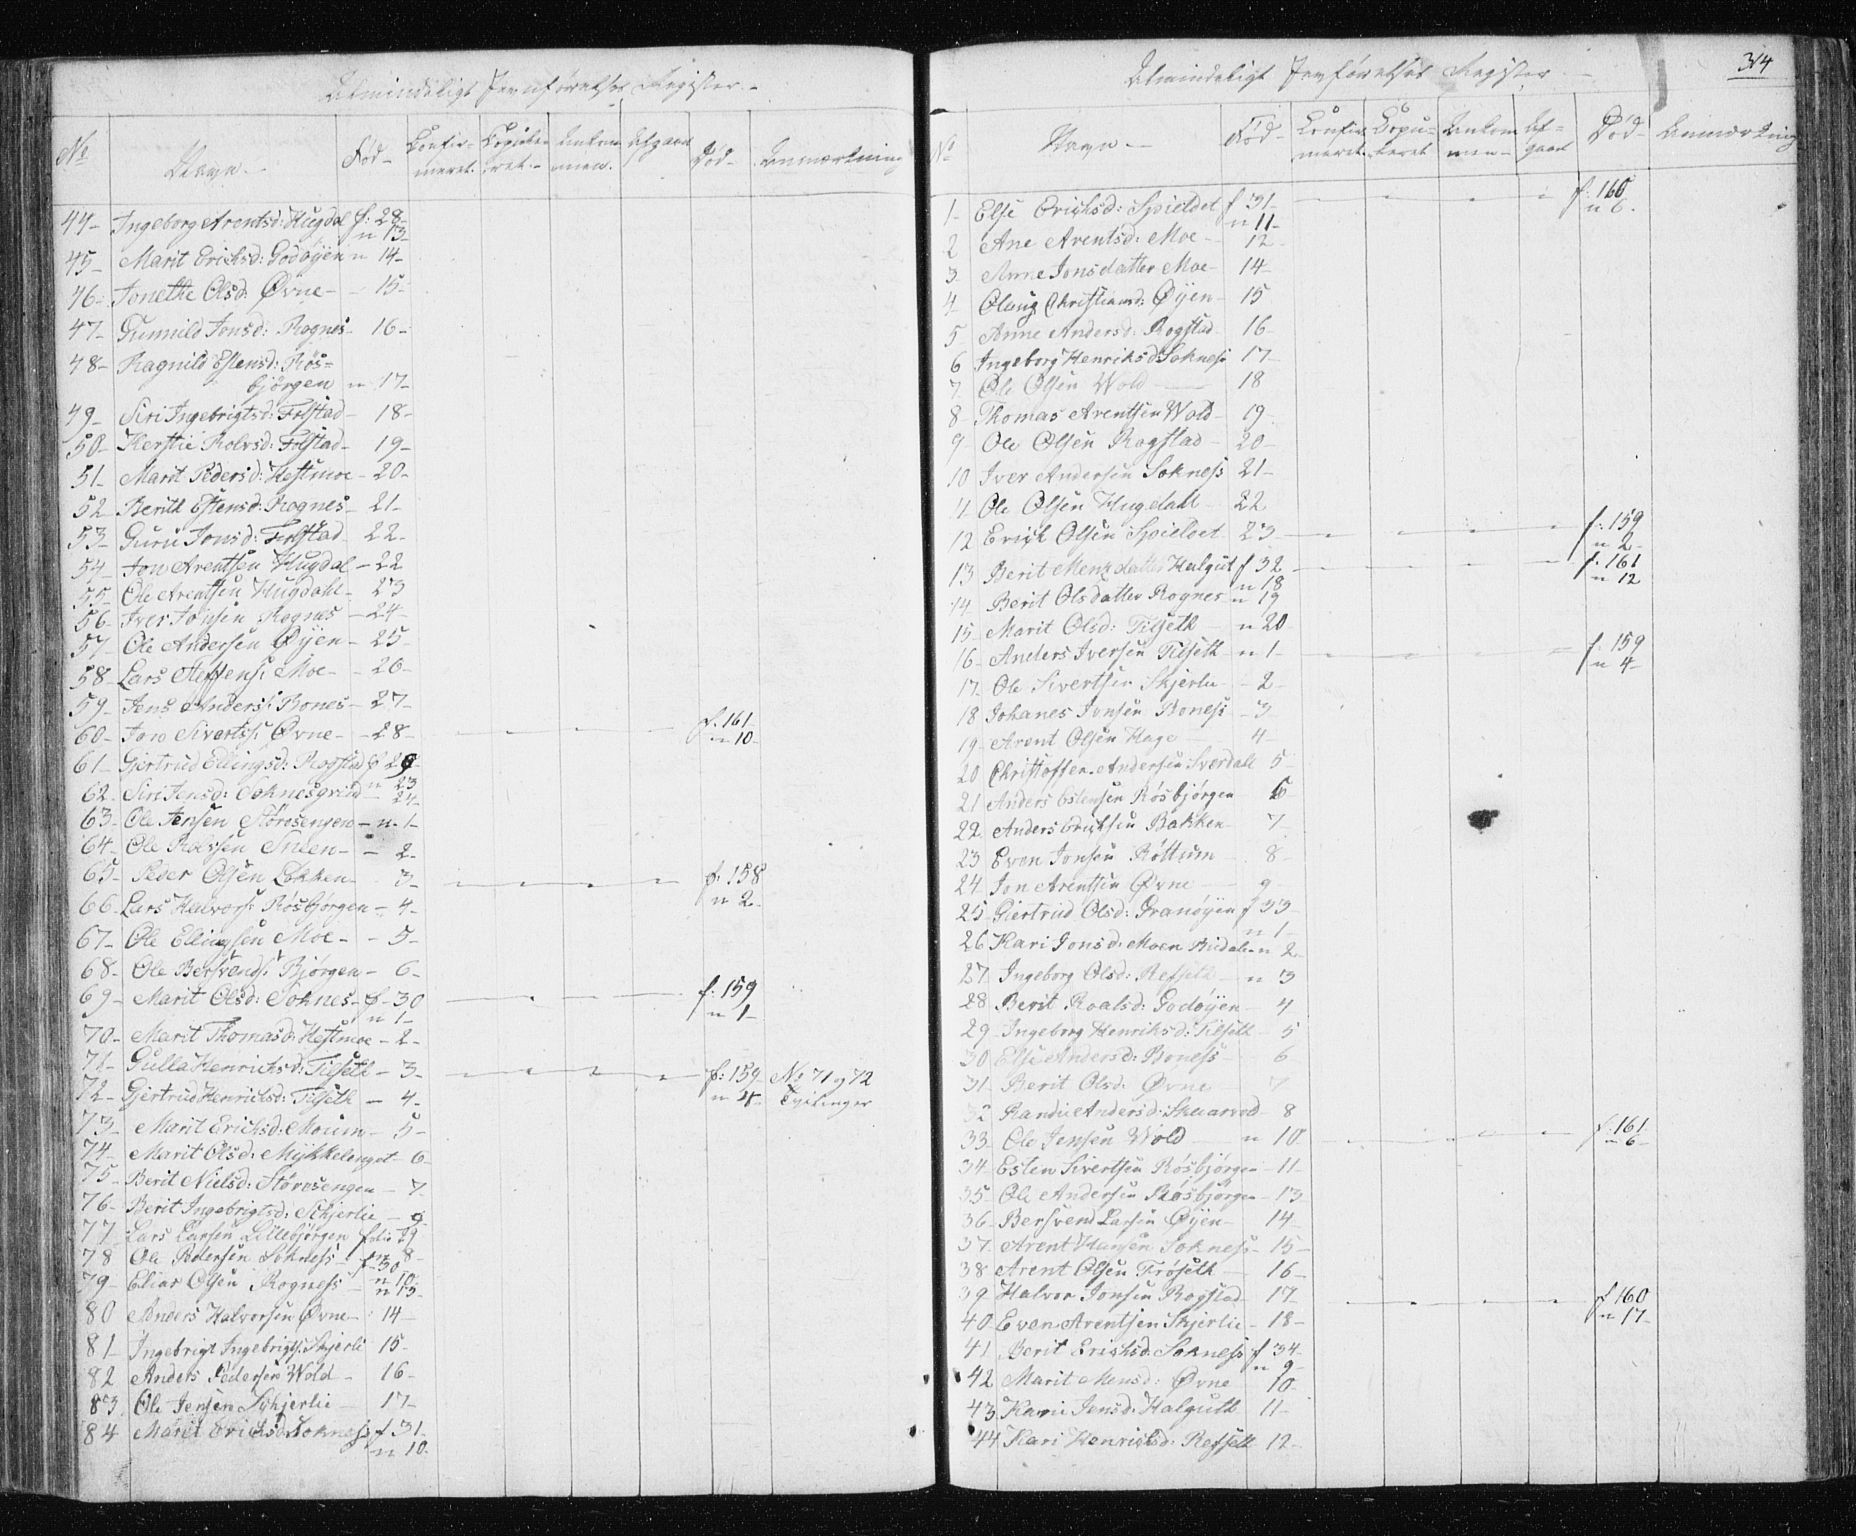 Almindeligt Jevnførelses Register
No Navn Fød Confirmeret Copuleret Ankommen Afgaaet Død Anmærkning
44 Ingeborg Arentsd: Hugdal f: 28
n 13
45 Marit Erichsd: Godøyen n 14
46 Jonethe Olsd: Øvne 15
47 Gunnild Jonsd: Rognes 16
48 Ragnild Estensd: Røs=
bjørgen n 17
49 Siri Ingebrigtsd: Folstad 18
50 Kerstie Rolvsd: Folstad 19
51 Marit Pedersd: Hestmoe 20
52 Berith Estensd: Rognes 21
53 Guru Jonsd: Folstad 22
54 Jon Arentsen Hugdal 22
55 Ole Arentsen Hugdahl 23
56 Iver Jonsen Rognes 24
57 Ole Andersen Øyen 25
58 Lars Steffens: Moe 26
59 Jens Anders: Bones 27
60 Jon Siverts: Øvne 28 f. 161
n 10
61 Gjertrud Ellingsd: Rogstad f 29
n 23
62 Siri Jensd: Soknesgrind 24
63 Ole Jensen Størosengen n 1
64 Ole Rolvsen Snøen 2
65 Peder Olsen Løkken 3 f: 158
n 2
66 Lars Halvors: Røsbjørgen 4
67 Ole Ellingsen Moe 5
68 Ole Bersvends: Bjørgen 6
69 Marit Olsd: Soknes f 30 f: 159
n 1 n 1
70 Marit Thomasd: Hestmoe 2
71 Gulla Henrichsd: Tilseth 3 f: 159 No 71 og 72
72 Gjertrud Henrichsd: Tilseth 4 n 4 Tvilinger
73 Marit Erichsd: Moum 5
74 Marit Olsd: Mykkelenget 6
75 Berit Nielsd: Størosengen 7
76 Berit Ingebrigtsd: Schjerlie 9
77 Lars Larsen Lillebjørgen folio 29
n 8
78 Ole Pedersen Sokness f 30
n 10
79 Elias Olsen Rogness n 13
80 Anders Halvorsen Øvne 14
81 Ingebrigt Ingebrigts: Skjerli 15
82 Anders Pedersen Wold 16
83 Ole Jensen Schjerlie 17
84 Marit Erichsd: Sokness f 31
n 10
Almindeligt Jevnførelses Register
314
No Navn Fød Confirmeret Copuleret Ankommen Afgaaet Død Anmærkning
1 Else Erichsd: Spieldet f 31 f: 160
n 11 n 6
2 Ane Arentsd: Moe 12
3 Anne Jonsdatter Moe 14
4 Olaug Christiansd: Øyen 15
5 Anne Andersd: Rogstad 16
6 Ingeborg Henriksd Sokness 17
7 Ole Olsen Wold 18
8 Thomas Arentsen Wold 19
9 Ole Olsen Rogstad 20
10 Iver Andersen Sokness 21
11 Ole Olsen Hugdahl 22
12 Erick Olsen Spieldet 23 f: 159
n 2
13 Berit Menzdatter Halgut f 32 f: 161
n 18 n 12
14 Berit Olsdatter Rognes n 19
15 Marit Olsd: Tilseth n 20
16 Anders Iversen Tilseth n 1 f: 159
n 4
17 Ole Sivertsen Skjerlie 2
18 Johanes Jonsen Boness 3
19 Arent Olsen Hage 4
20 Christoffer Andersen Sverdahl 5
21 Anders Estensen Røsbjørgen 6
22 Anders Ericksen Bakken 7
23 Even Jonsen Røttum 8
24 Jon Arentsen Øvne 9
25 Giertrud Olsd: Granøyen f 33
n 1
26 Kari Jonsd: Moen Budalen n 2
27 Ingeborg Olsd: Refseth n 3
28 Berit Roalsd: Godøyen 4
29 Ingeborg Henriksd: Tilseth 5
30 Else Andersd: Boness 6
31 Berit Olsd: Øvne 7
32 Randie Andersd: Skaarvold 8
33 Ole Jensen Wold n 10 f. 161
n 6
34 Esten Sivertsen Røsbjørgen 11
35 Ole Andersen Røsbjørgen 13
36 Bersvend Larsen Øyen 14
37 Arent Hansen Sokness 15
38 Arent Olsen Frøseth 16
39 Halvor Jonsen Rogstad 17 f 160
n 17
40 Even Arentsen Skjerlie 18
41 Berit Erichsd: Sokness f 34
n 9
42 Marit Mensd: Øvne 10
43 Karie Jensd: Halguth 11
44 Kari Henrichsd: Refseth 12